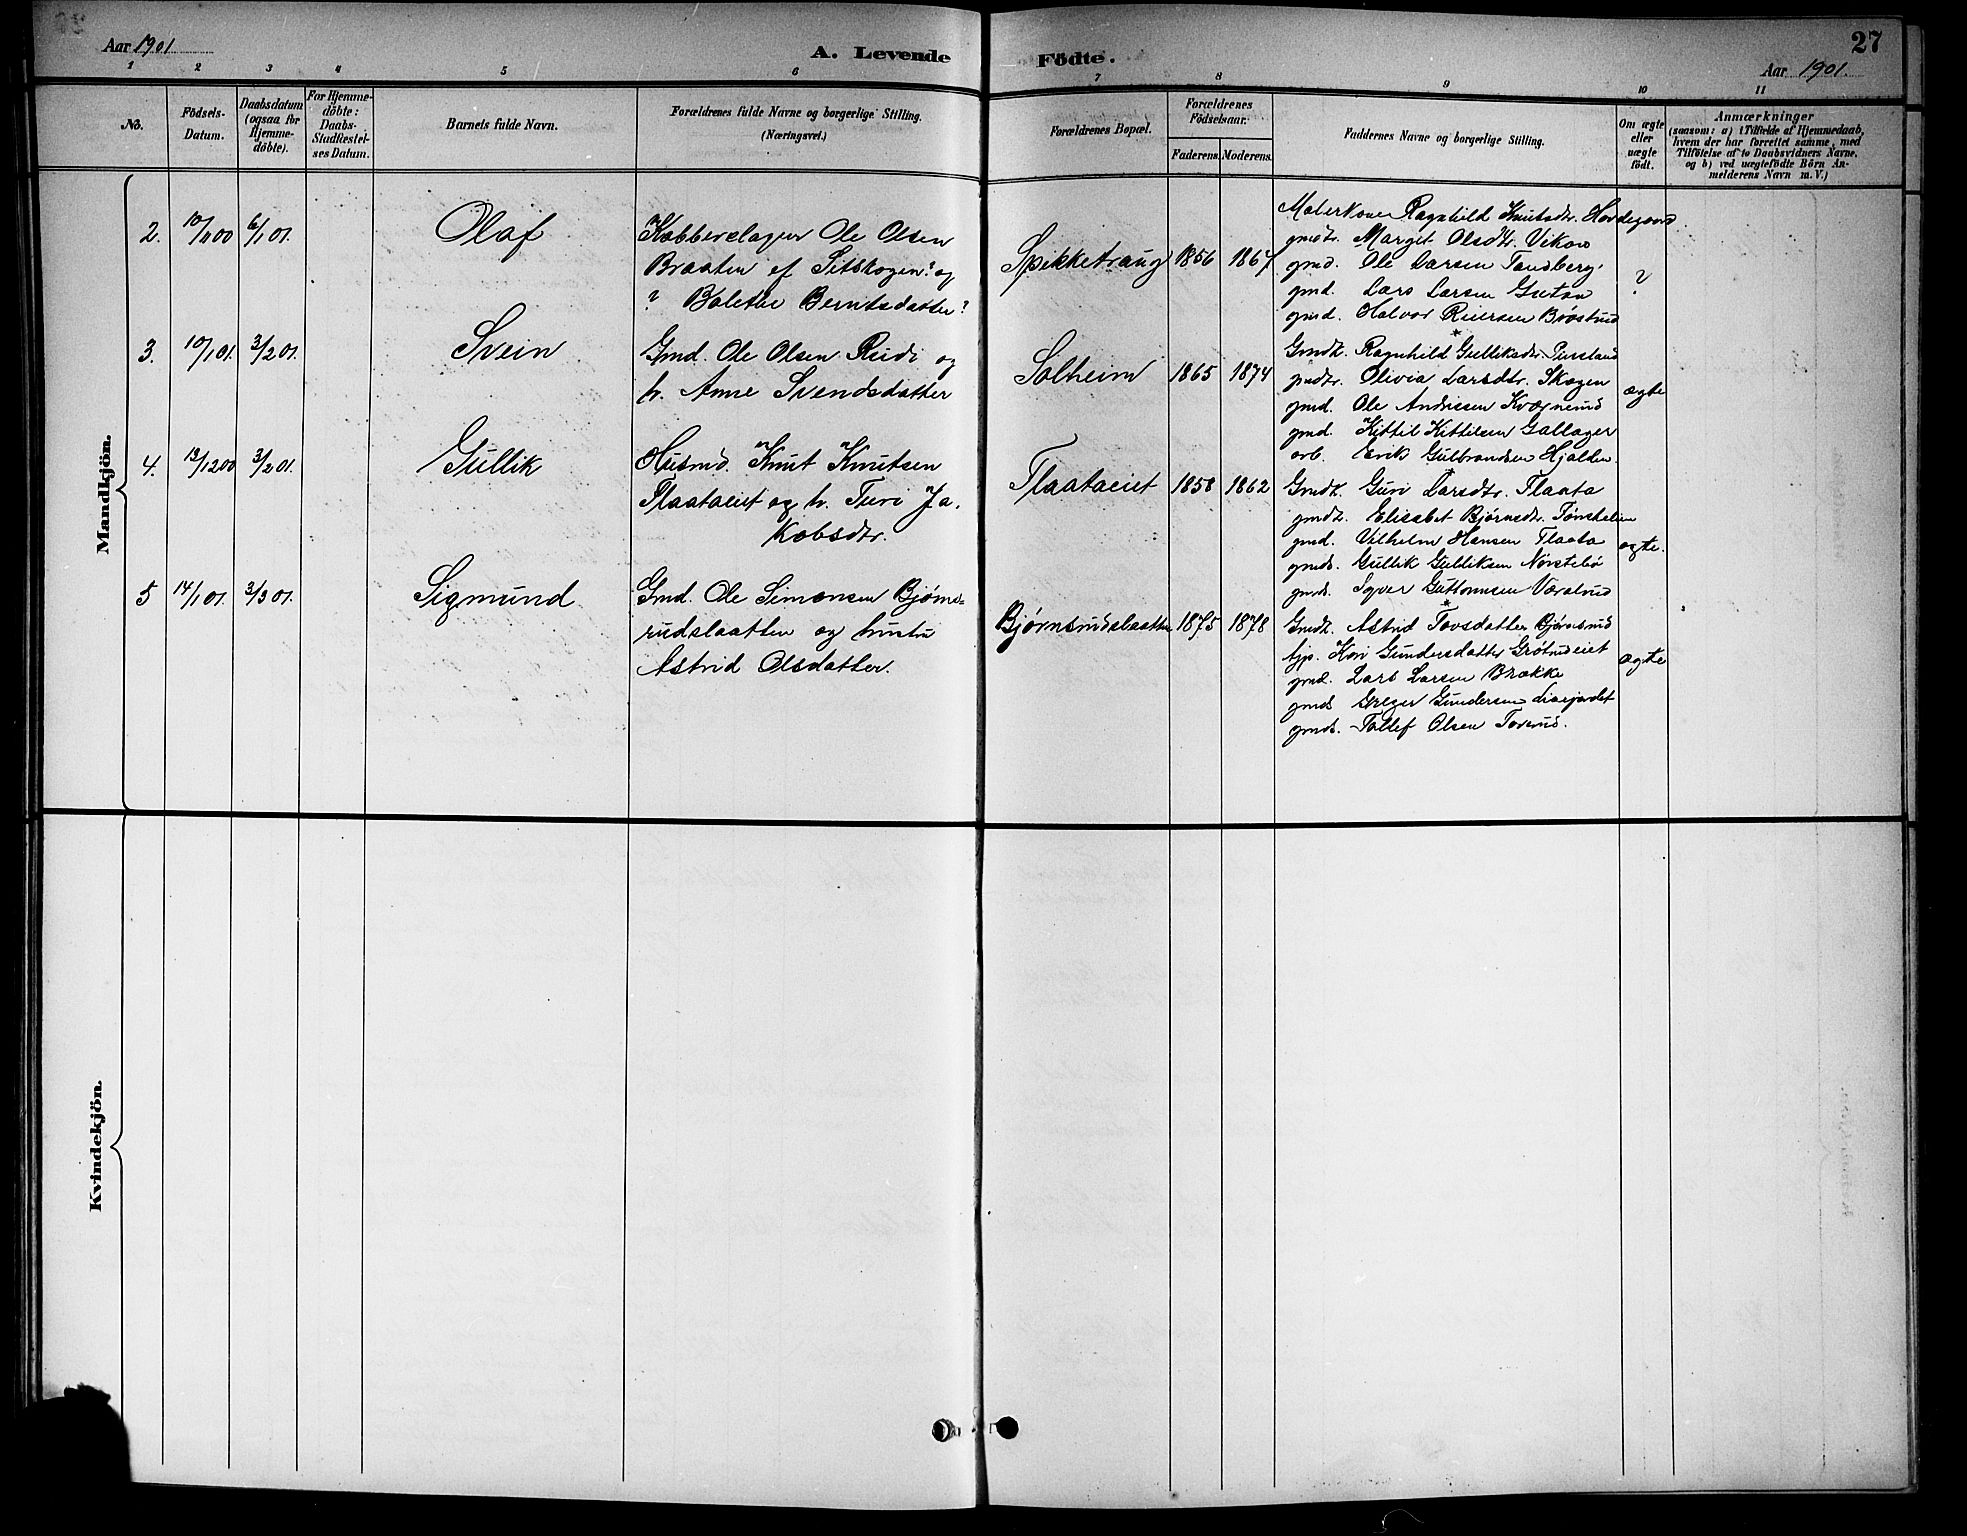 Aar 1901
A. Levende Födte.
27
Aar 1901.
1 2 3 4 5 6 7 8 9 10 11
No.
Födsels-Datum.
Daabsdatum (ogsaa for Hjemme-döbte).
For Hjemme-döbte: Daabs-Stadfæstel-ses Datum.
Barnets fulde Navn.
Forældrenes fulde Navne og borgerlige Stilling. (Næringsvei.)
Forældrenes Bopæl.
Forældrenes Födselsaar.
Faderens. Moderens.
Faddernes Navne og borgerlige Stilling.
Om ægte eller uægte födt.
Anmærkninger
(saasom: a) i Tilfælde af Hjemmedaab,
hvem der har forrettet samme, med
Tilföielse af to Daabsvidners Navne,
og b) ved uægtefödte Börn An-
melderens Navn m. V.)
Mandkjön.
2. 10/1100 6/101. Olaf
Kobberslager Ole Olsen
Braaten af Sitskogen? og
? Bolette Berntsdatter?
Spikketraug 1856 1867
Malerkone Ragnhild Knutsdtr. Hordegaard
gmdtr. Marget Olsdtr. Vikan
gmd. Ole Larsen Tandberg.
gmd. Lars Larsen
gmd. Halvor Reiersen Brøstrud
?
3. 10/101. 3/201. Svein
Gmd. Ole Olsen Rudi og
h. Anne Svendsdatter
Solheim 1865 1874
Gmdk. Ragnhild Gulliksdtr.
gmdtr. Olivia Larsdtr. Skogen
gmd. Ole Andrissen Kværnrud
gmd. Kittil Kittilsen Gallager
arb. Erik Gulbrandsen Hjalten.
ægte
4. 13/1200 3/201. Gullik
Husmd. Knut Knutsen
Flaataeiet og h. Turi Ja.
kobsdtr.
Flaataeiet 1858 1862
Gmdk. Guri Larsdtr. Flaata
gmdtr. Elisabet Bjørnsdtr.
gmd. Vilhelm Hansen Flaata
gmds. Gullik Gulliksen Nørstebø
gmds. Syver Guttormsen
ægte.
5 14/101. 3/301. Sigmund
Gmd. Ole Simensen Bjørns-
rudslaatten og hustru
Astrid Olsdatter.
Bjørnsrudslaatten 1875 1878
Gmdk. Astrid Tovsdatter Bjørnsrud
tjp. Kari Gundersdatter Grøtrudeiet
gmd. Lars Larsen Brække
gmds Greger Gundersen Liagjordet
gmds. Tollef Olsen Toverud.
ægte
Kvindekjön.